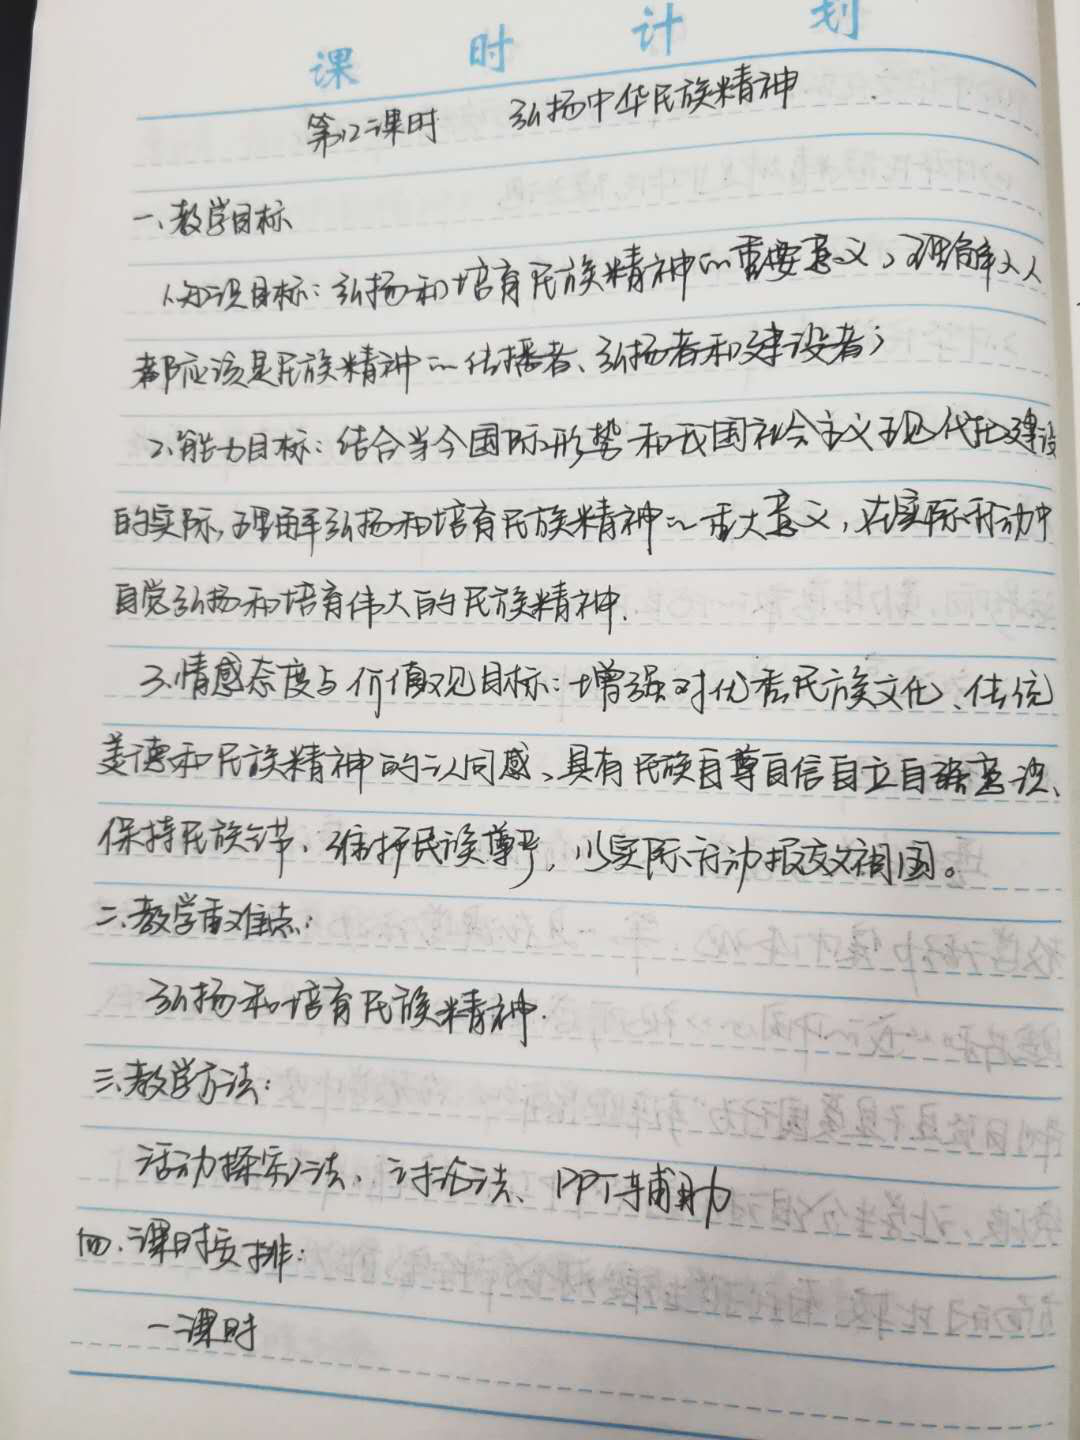 课时计划
第12课时 弘扬中华民族精神
一、教学目标
1、知识目标:弘扬和培育民族精神的重要意义,理解人人
都应该是民族精神的传播者、弘扬者和建设者;
2、能力目标:结合当今国际形势和我国社会主义现代化建设
的实际,理解弘扬和培育民族精神的重大意义,在实际行动中
自觉弘扬和培育伟大的民族精神.
3、情感态度与价值观目标:增强对优秀民族文化、传统
美德和民族精神的认同感、具有民族自尊自信自立自强意识、
保持民族气节、维护民族尊严,以实际行动报效祖国。
二、教学重难点:
弘扬和培育民族精神.
三、教学方法:
活动探究法、讨论法、PPT辅助
四、课时安排:
一课时